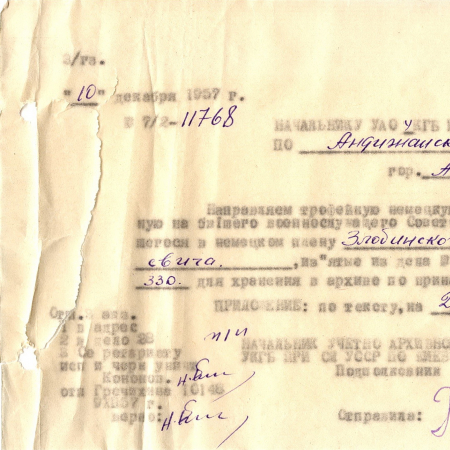 з/гв.
"10" декабря 1957 г.
№ 7/2-11768
НАЧАЛЬНИКУ УАО УКГБ
ПО Андижанск
гор. А
Направляем трофейную немецку
ную на бывшего военнослужащего Совет
шегося в немецком плену Злобинско
евича. ,из"ятые из дела №
330. для хранения в архиве по прин
ПРИЛОЖЕНИЕ: по тексту, на 2
Отп. 3 экз.
1 в адрес
2 в дело 28
3 Секретариату
исп и черн унич
Кононов.
отп Гречихина 10146
9XП57 г.
верно:
п/п
НАЧАЛЬНИК УЧЕТНО АРХИВНО
УКГБ ПРИ СМ УССР ПО КИЕВ
Подполковник
Отправила: